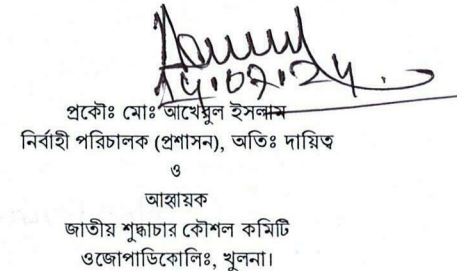 14.07.24
প্রকৌঃ মোঃ আখেরুল ইসলাম
নির্বাহী পরিচালক (প্রশাসন), অতিঃ দায়িত্ব
ও
আহ্বায়ক
জাতীয় শুদ্ধাচার কৌশল কমিটি
ওজোপাডিকোলিঃ, খুলনা।